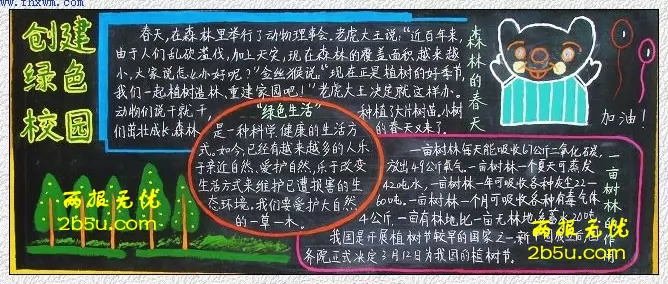 www.fnxwm.com
创建
绿色
校园
春天,在森林里举行了动物理事会。老虎大王说:“近百年来,
由于人们乱砍滥伐,加上天灾,现在森林的覆盖面积越来越
小,大家说怎么办好呢?”金丝猴说:“现在正是植树的好季节,
我们一起植树造林、重建家园吧!”老虎大王决定就这样办。
动物们说干就干,
种植了大片树苗。小树
们茁壮成长,森林
的春天又来了。
森林的春天
加油!
“绿色生活”
是一种科学健康的生活方
式。如今,已经有越来越多的人乐
于亲近自然、爱护自然,乐于改变
生活方式来维护已遭损害的生
态环境。我们要爱护大自然
的一草一木。
一亩树林的作用
一亩树林每天能吸收67公斤二氧化碳,
放出49公斤氧气。一亩树林一个夏天可蒸发
42吨水,一亩树林一年可吸收各种灰尘22—
60吨。一亩树林一个月可吸收各种有毒气体
4公斤,一亩有林地比一亩无林地多蓄水20吨。
我国是开展植树节较早的国家之一。新中国成立后国
务院正式决定3月12日为我国的植树节。
两报无忧
2b5u.com
两报无忧
2b5u.com